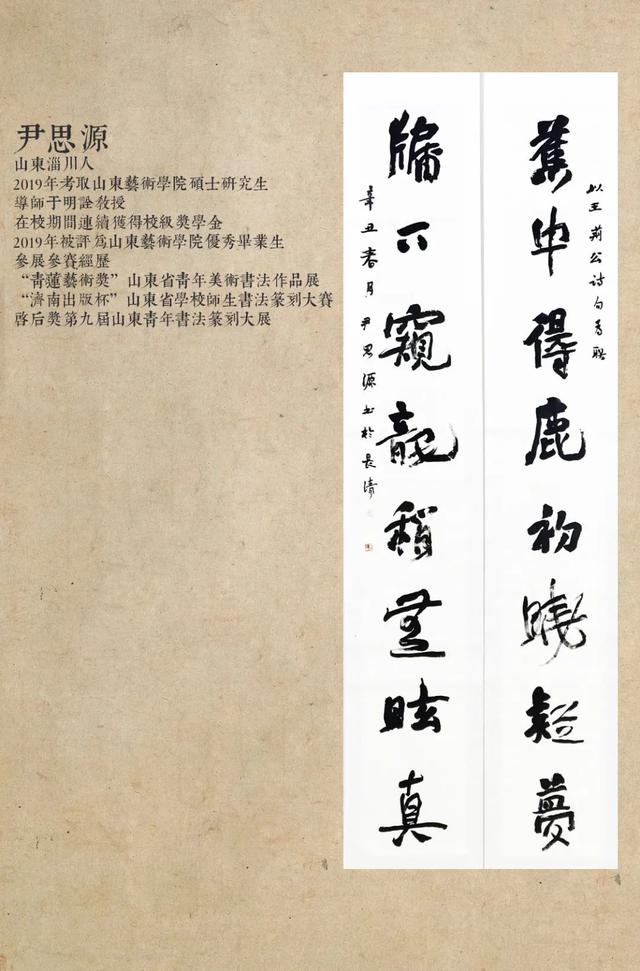 尹思源
山東淄川人
2019年考取山東藝術學院碩士研究生
導師于明詮教授
在校期間連續獲得校級獎學金
2019年被評爲山東藝術學院優秀畢業生
參展參賽經歷
“青蓮藝術獎”山東省青年美術書法作品展
“濟南出版杯”山東省學校師生書法篆刻大賽
啓后獎第九屆山東青年書法篆刻大展
以王荊公诗句為聯
蕉中得鹿初曉疑夢
牖下窺龍稍無眩真
辛丑春月尹思源书於長清